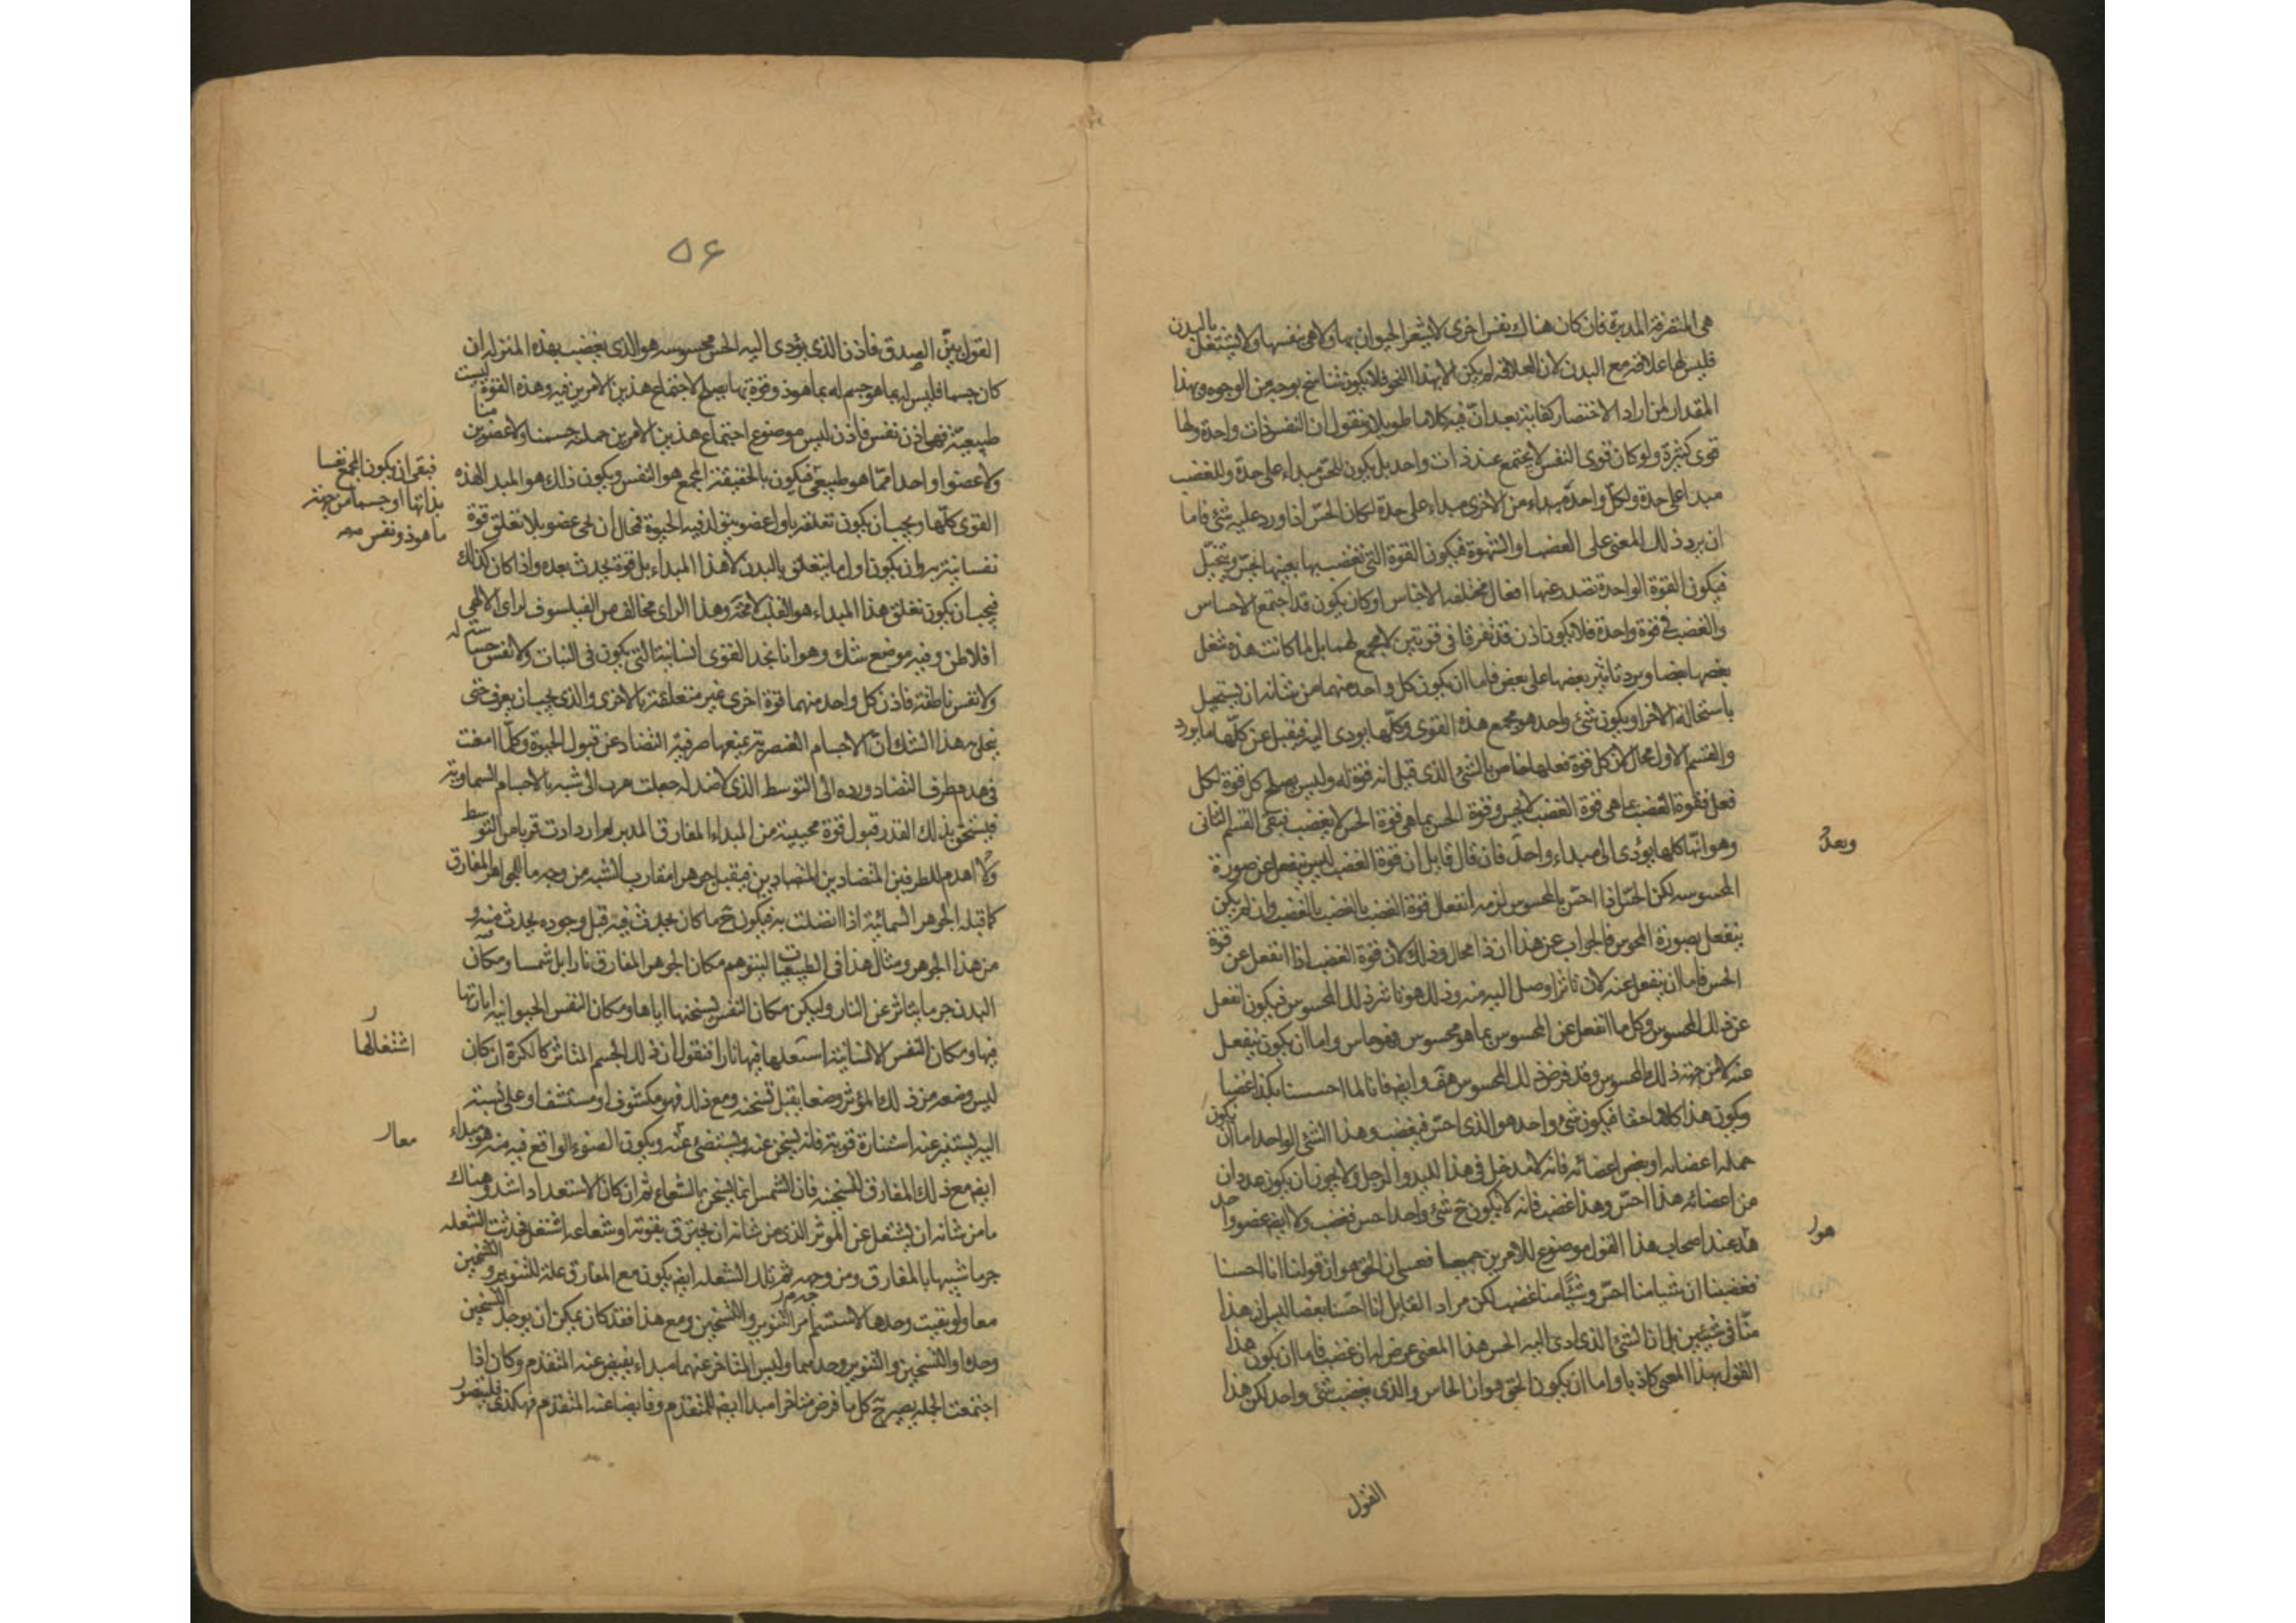 هى المتفرقة المدبرة فان كان هناك نفس اخرى لا يشعر الحيوان بها ولا هى بنفسها ولا يشتغل بالبدن
فليس لها علاقة مع البدن لان العلاقة لم يكن الا بهذا النحو فلا يكون تناسخ بوجه من الوجوه وبهذا
المقدار لمن اراد الاختصار كفاية بعد ان فيه كلاما طويلا ونقول ان النفس ذات واحدة ولها
قوى كثيرة ولو كان قوى النفس لا يجتمع عند ذات واحد بل يكون للحس مبداء على حدة وللغضب
مبدا على حدة ولكل واحدة مبداء من الاخرى مبداء على حدة لكان الحس اذا ورد عليه شئ فاما
ان يرد ذلك المعنى على الغضب او الشهوة فيكون القوة التى تغضب بها بعينها تحس وتتخيل
فيكون القوة الواحدة تصدر عنها افعال مختلفة الاجناس او كان يكون قد اجتمع الاحساس
والغضب فى قوة واحدة فلا يكون اذن قد تفرقا فى قوتين لا مجمع لهما بل لما كانت هذه تشغل
بعضها بعضا ويرد تاثير بعضها على بعض فاما ان يكون كل واحد منهما من شانه ان يستحيل
باستحالة الاخر او يكون شئ واحد هو مجمع هذه القوى وكلها يودى اليه فيقبل عن كلها ما يورد
والقسم الاول محال لان كل قوة فعلها خاص بالشئ الذى قيل انه قوة له وليس يصلح كل قوة لكل
فعل فقوة الغضب بما هى قوة الغضب لا يحس وقوة الحس بما هى قوة الحس لا يغضب فبقى القسم الثانى
وهو انها كلها يودى الى مبداء واحد فان قال قايل ان قوة الغضب ليس ينفعل عن صورة
وبعد
المحسوسه لكن الحس اذا احس بالمحسوس لزمه انفعال قوة الغضب بالغضب بالغضب وان لم يكن
ينفعل بصورة المحسوس فالجواب عن هذا ان ذا محال وذلك لان قوة الغضب اذا انفعل عن قوة
الحس فاما ان ينفعل عنه لان تاثيرا وصل اليه منه وذلك هو تاثير ذلك المحسوس فيكون انفعل
عن ذلك المحسوس وكل ما انفعل عن المحسوس بما هو محسوس فهو حاس واما ان يكون ينفعل
عنه لا من جهة ذلك المحسوس وقد فرض ذلك المحسوس هف وايضا فانا لما احسسنا بكذا غضبنا
ويكون هذا كلاما حقا فيكون شئ واحد هو الذى احس فغضب وهذا الشئ الواحد اما ان يكون
جملة اعضائه او بعض اعضائه فانه لا مدخل فى هذا لليد والرجل ولا يجوز ان يكون عددان
من اعضائه هذا احس وهذا غضب فانه لا يكون ح شئ واحد احس فغضب ولا ايضا عضو واحد
هو
عند اصحاب هذا القول موضوع للامرين جميعا فعسى ان الحق هو ان قولنا انا احسنا
فغضبنا ان شيئا منا احس وشيئا منا غضب لكن مراد القايل انا احسنا بغضنا ليس ان هذا
منا فى شيئين بل ان الشئ الذى ادى اليه الحس هذا المعنى عرض له ان غضب فاما ان يكون هذا
القول بهذا المعنى كاذبا واما ان يكون الحق هو ان الحاس والذى يغضب شئ واحد لكن هذا
القول
۵۶
القول بين الصدق فاذن الذى يؤدى اليه الحس محسوسه هو الذى يغضب بهذه المنزلة ان
كان جسما فليس له بما هو جسم له بما هو ذو قوة بها يصلح لاجتماع هذين الامرين فيه وهذه القوة ليست
طبيعية فهى اذن نفس فاذن ليس موضوع اجتماع هذين الامرين جملة جسمنا ولا عضوين منا
ولا عضوا واحدا مما هو طبيعى فيكون بالحقيقة المجمع هو النفس ويكون ذلك هو المبدا لهذه
فبقى ان يكون المجمع نفسا
بذاتها او جسما من جهة
ما هو ذو نفس صح
القوى كلها ويجب ان يكون تعلقه باول عضو يتولد فيه الحيوة فمحال ان يحى عضو بلا تعلق قوة
نفسانية به وان يكون اول ما يتعلق بالبدن لا هذا المبداء بل قوة يحدث بعده واذا كان كذلك
فيجب ان يكون تعلق هذا المبداء هو القلب لا محة وهذا الراى مخالف من الفيلسوف لراى الالهى
افلاطن وفيه موضع شك وهو انا نجد القوى النباتية التى يكون فى النبات ولا نفس حساسة له
ولا نفس ناطقة فاذن كل واحد منهما قوة اخرى غير متعلقة بالاخرى والذى يجب ان يعرف حتى
ينحل به هذا الشك ان الاجسام العنصرية يمنعها صرفية التضاد عن قبول الحيوة وكلما امعنت
فى هدم طرف التضاد ورده الى التوسط الذى لا ضد له جعلت تقرب الى شبه بالاجسام السماوية
فيستحق بذلك القدر قبول قوة محيية من المبداء المفارق المدبر ثم ازدادت قربا من التوسط
ولا اهدم للطرفين المتضادين فيقبل جوهرا مقارب الشبه من وجه ما للجواهر المفارق
كما قبله الجوهر السمائية اذا اتصلت به فيكون ح ما كان يحدث فيه قبل وجوده يحدث فيه و
من هذا الجوهر ومثال هذا فى الطبيعيات ليتوهم مكان الجوهر المفارق نارا بل شمسا ومكان
البدن جرما يتاثر عن النار وليكن مكان النفس تسخنها اياها ومكان النفس الحيوانية انارتها
فيها ومكان النفس الانسانية استعلها فيها نارا فنقول ان ذلك الجسم المتاثر كالكرة ان كان
اشتعالها
ليس وضعه من ذلك المؤثر وضعا يقبل تسخنه ومع ذلك فهو مكشوف او مستشف او على نسبة
اليه يستنير عنه استنارة قوية فانه يسخن عنه ويستضئ عنه ويكون الضوء الواقع فيه منه هو مبداء
معا
ايضا مع ذلك المفارق لتسخينه فان الشمس انما يسخن بالشعاع ثم ان كان الاستعداد اشد وهناك
ما من شانه ان يشتعل عن المؤثر الذى من شانه ان يحترق بقوته او شعاعه اشتعل فحدثت الشعله
جرما شبيها بالمفارق ومن وجه ثم تلك الشعلة ايضا يكون مع المفارق علة للتنوير والتسخين
معا ولو بقيت وحدها لاستتم امر التنوير والتسخين ومع هذا فقد كان يمكن ان يوجد التسخين
وحده او التسخين والتنوير وحدهما وليس المتاخر عنهما مبداء يفيض عنه المتقدم وكان اذا
اجتمعت الجملة يصير ح كل ما فرض متاخرا مبدا ايضا للمتقدم وفايضا عنه المتقدم فهكذى فليتصور